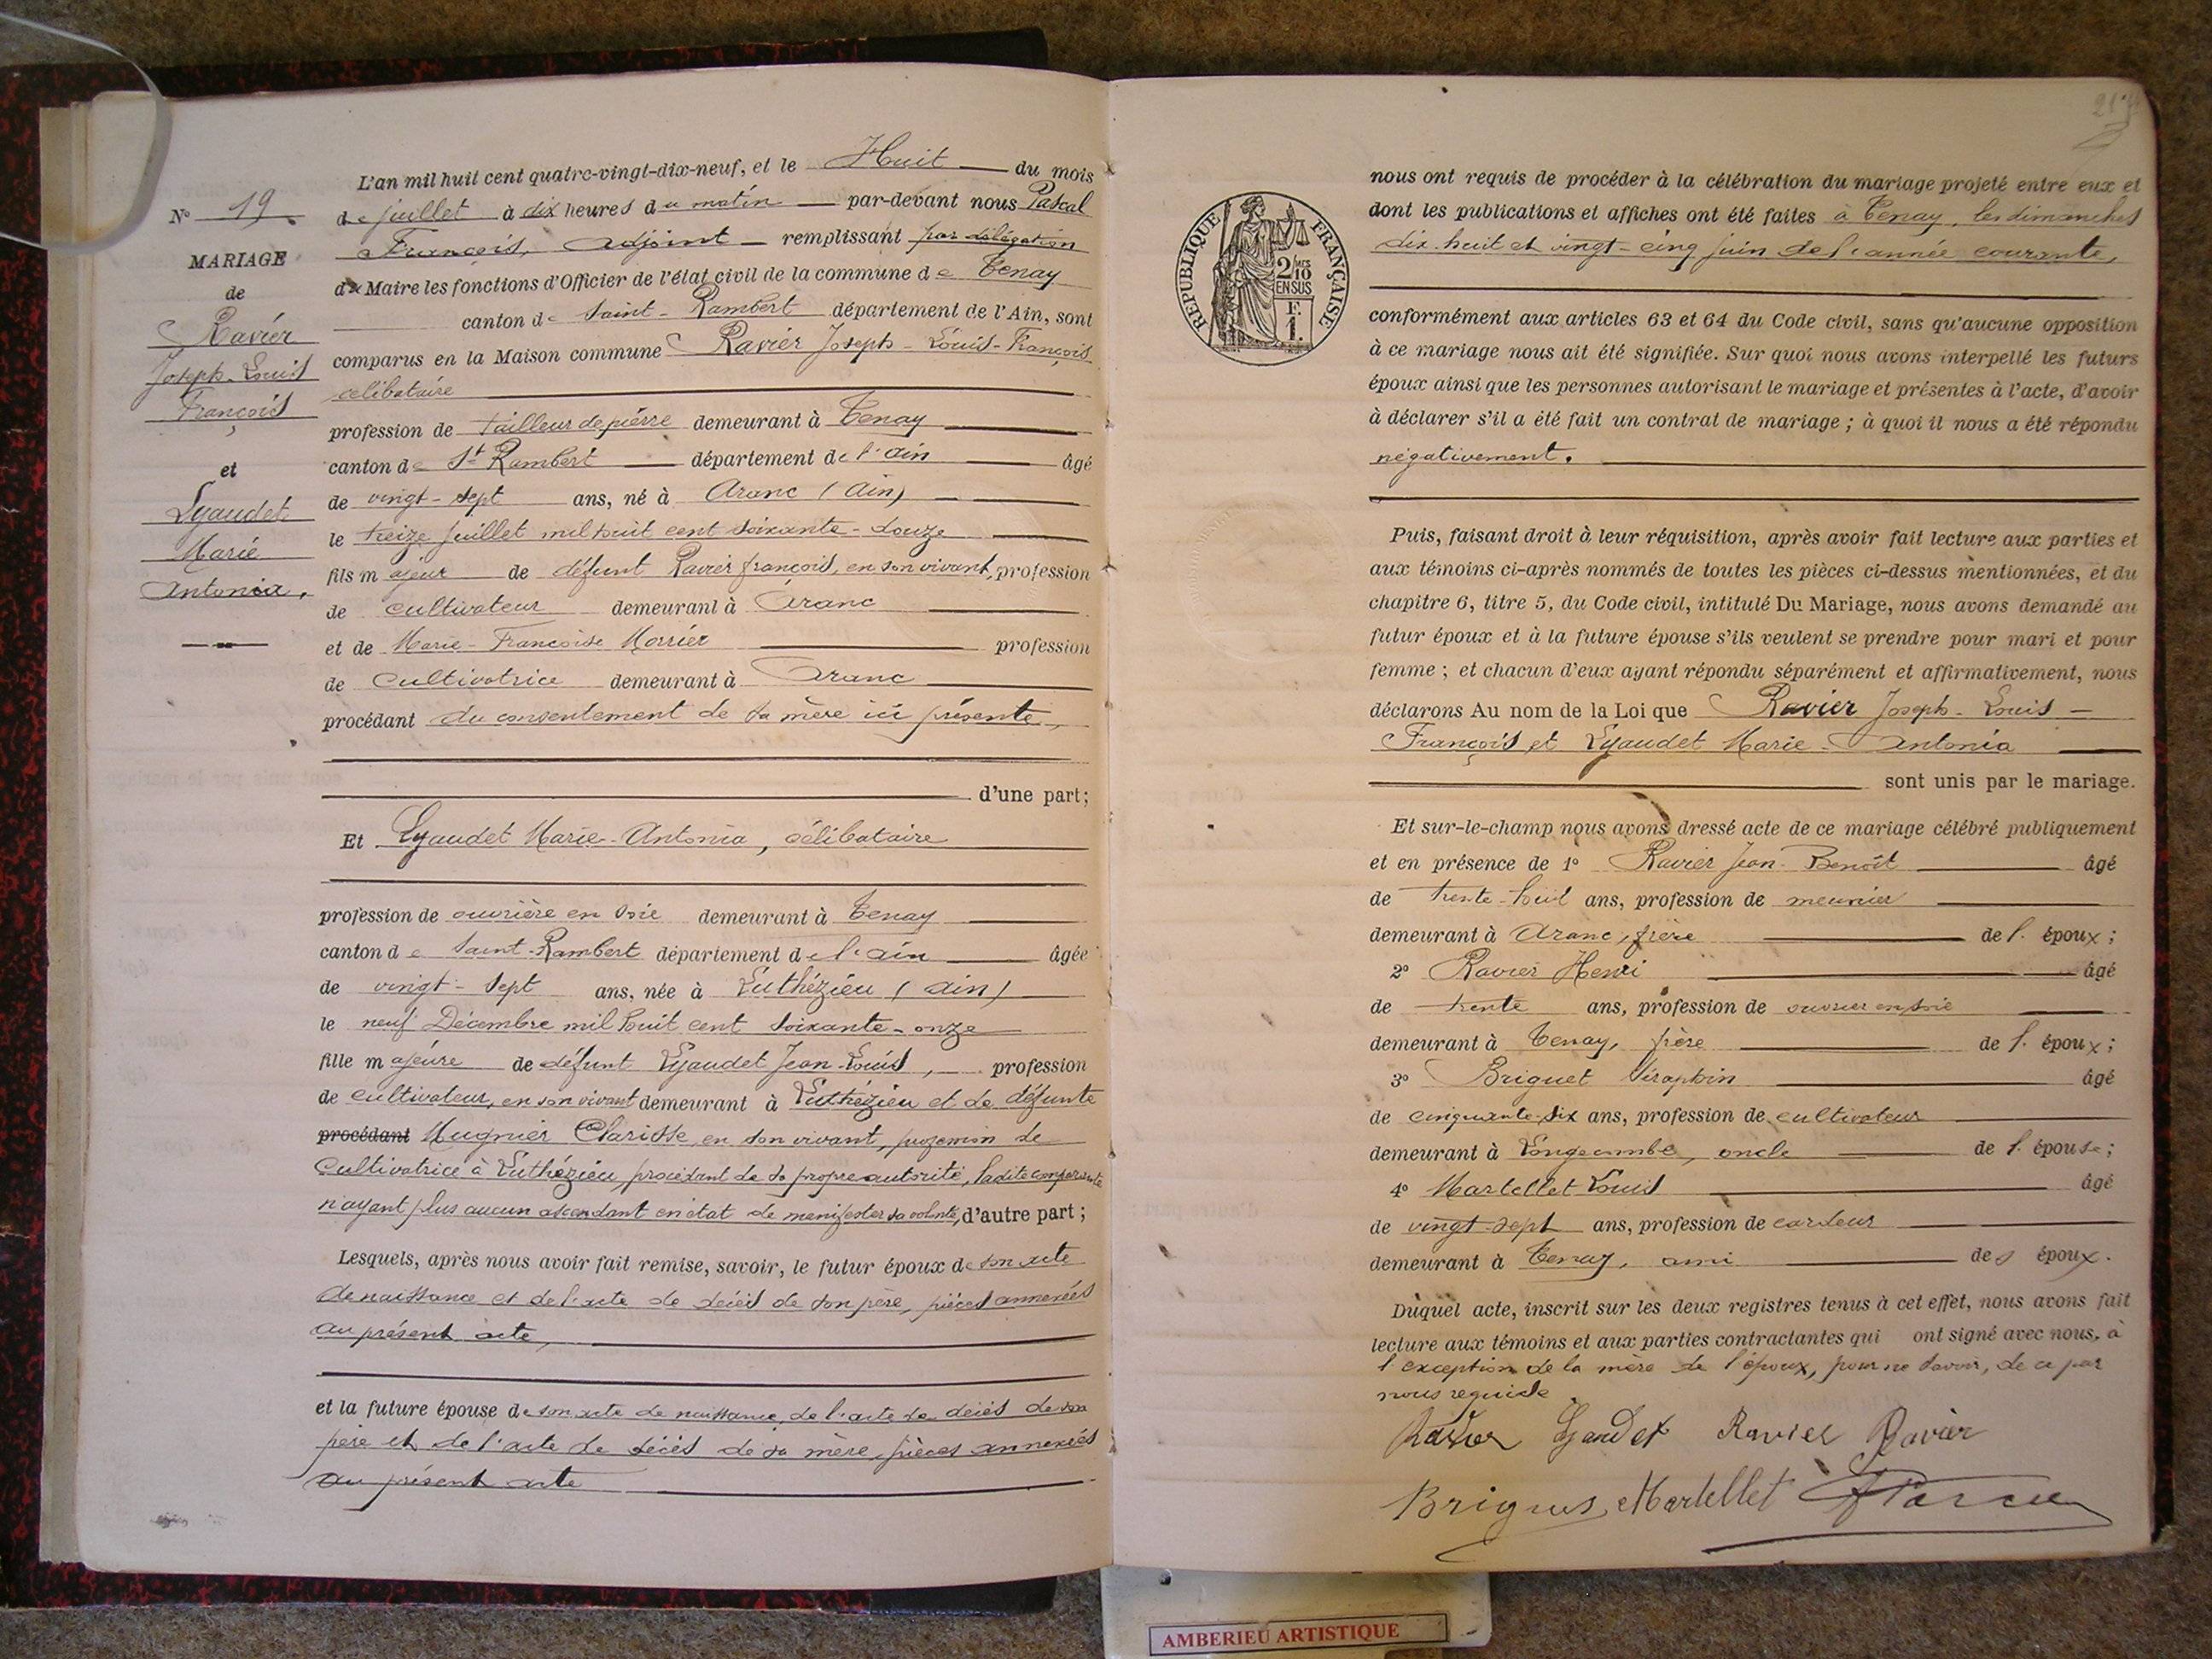 L'an mil huit cent quatre-vingt-dix-neuf, et le Huit du mois
de juillet à dix heures du matin par-devant nous Pascal
François, adjoint remplissant par délégation
du Maire les fonctions d'Officier de l'état civil de la commune de Tenay
canton de Saint-Rambert département de l'Ain, sont
comparus en la Maison commune Ravier Joseph-Louis-François
célibataire
profession de tailleur de pierre demeurant à Tenay
canton de St Rambert département de l'ain âgé
de vingt-sept ans, né à Aranc (Ain)
le treize juillet mil huit cent soixante-douze
fils majeur de défunt Ravier françois, en son vivant, profession
de cultivateur demeurant à Aranc
et de Marie-Françoise profession
de Cultivatrice demeurant à Aranc
procédant du consentement de sa mère ici présente,
d'une part;
Et Lyaudet Marie-Antonia, célibataire
profession de ouvrière en soie demeurant à Tenay
canton de Saint-Rambert département de l'ain âgée
de vingt-sept ans, née à Luthézieu (Ain)
le neuf Décembre mil huit cent soixante-onze
fille majeure de défunt Lyaudet Jean-Louis, profession
de cultivateur, en son vivant demeurant à Luthézieu et de défunte
procédant Mugnier Clarisse, en son vivant, profession de
Cultivatrice à Luthézieu, procédant de sa propre autorité, ladite comparante
n'ayant plus aucun ascendant en état de manifester sa volonté, d'autre part;
Lesquels, après nous avoir fait remise, savoir, le futur époux de son acte
de naissance et de l'acte de décès de son père, pièces annexées
au présent acte,
et la future épouse de son acte de naissance, de l'acte de décès de son
père et de l'acte de décès de sa mère, pièces annexées
au présent acte
N° 19
MARIAGE
de
Ravier
Joseph-Louis
François
et
Lyaudet
Marie
Antonia,
REPUBLIQUE FRANÇAISE
2/10
EN SUS
F.
1.
nous ont requis de procéder à la célébration du mariage projeté entre eux et
dont les publications et affiches ont été faites à Tenay, les dimanches
dix-huit et vingt-cinq juin de l'année courante,
conformément aux articles 63 et 64 du Code civil, sans qu'aucune opposition
à ce mariage nous ait été signifiée. Sur quoi nous avons interpellé les futurs
époux ainsi que les personnes autorisant le mariage et présentes à l'acte, d'avoir
à déclarer s'il a été fait un contrat de mariage; à quoi il nous a été répondu
négativement.
Puis, faisant droit à leur réquisition, après avoir fait lecture aux parties et
aux témoins ci-après nommés de toutes les pièces ci-dessus mentionnées, et du
chapitre 6, titre 5, du Code civil, intitulé Du Mariage, nous avons demandé au
futur époux et à la future épouse s'ils veulent se prendre pour mari et pour
femme; et chacun d'eux ayant répondu séparément et affirmativement, nous
déclarons Au nom de la Loi que Ravier Joseph-Louis-
François et Lyaudet Marie-Antonia
sont unis par le mariage.
Et sur-le-champ nous avons dressé acte de ce mariage célébré publiquement
et en présence de 1° Ravier Jean-Benoît âgé
de trente-huit ans, profession de meunier
demeurant à Aranc, frère de l'époux;
2° Ravier Henri âgé
de trente ans, profession de ouvrier en soie
demeurant à Tenay, frère de l'époux;
3° Briguet Séraphin âgé
de cinquante-six ans, profession de cultivateur
demeurant à Longecombe, oncle de l'épouse;
4° Martellet Louis âgé
de vingt-sept ans, profession de cardeur
demeurant à Tenay, ami des époux.
Duquel acte, inscrit sur les deux registres tenus à cet effet, nous avons fait
lecture aux témoins et aux parties contractantes qui ont signé avec nous, à
l'exception de la mère de l'époux, pour ne savoir, de ce par
nous requise
Ravier Lyaudet Ravier Ravier
Martellet
AMBERIEU ARTISTIQUE